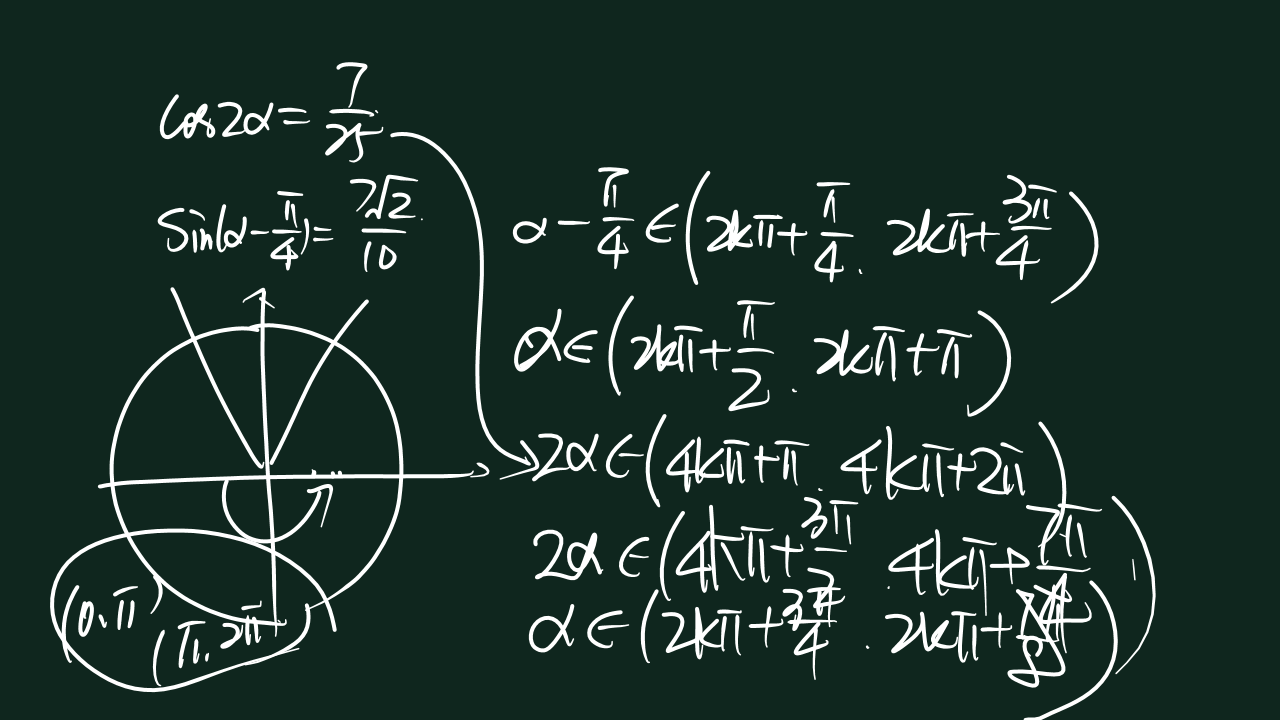 cos2α = 7/25
sin(α - π/4) = 7√2/10
α - π/4 ∈ (2kπ + π/4, 2kπ + 3π/4)
α ∈ (2kπ + π/2, 2kπ + π)
2α ∈ (4kπ + π, 4kπ + 2π)
2α ∈ (4kπ + 3π/2, 4kπ + 7π/4)
α ∈ (2kπ + 3π/4, 2kπ +
(0, π)
(π, 2π)